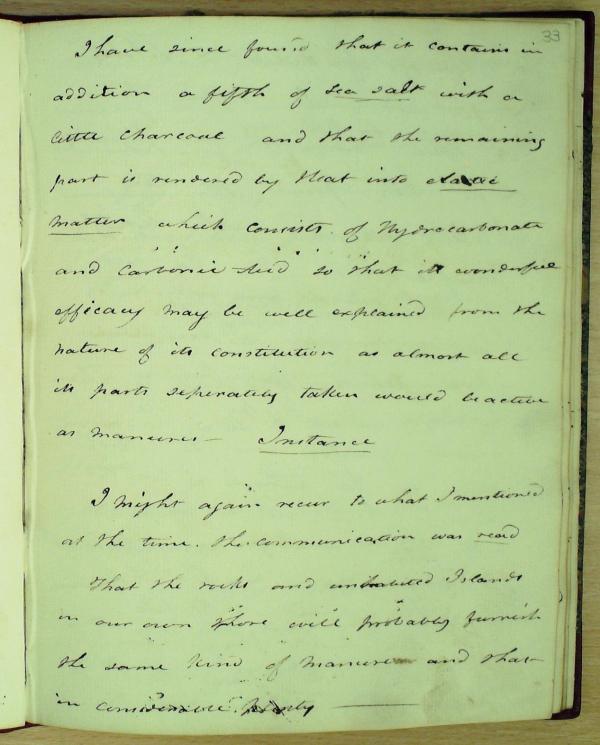 33
I have since found that it contains in
addition a fifth of sea salt with a
little charcoal and that the remaining
part is rendered by Heat into elastic
matter which consists of Hydrocarbonate
and Carbonic Acid so that its wonderful
efficacy may be well explained from the
nature of its constitution as almost all
its parts seperately taken would be active
as manures — Instance
I might again recur to what I mentioned
at the time. the communication was read
that the rocks and Islands
in our own Shore will probably furnish
the same kind of manure and that
in considerable plenty —